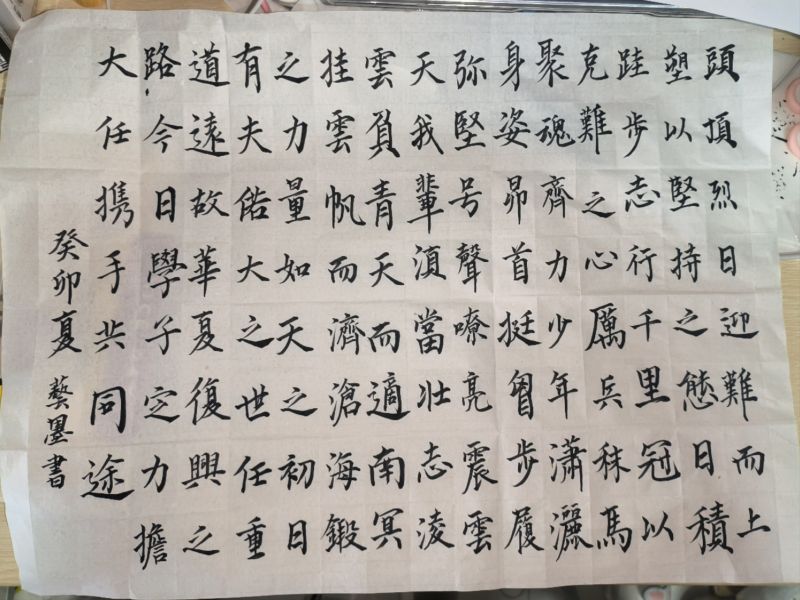 頭頂烈日迎難而上
塑以堅持之態日積
跬步志行千里冠以
克難之心厲兵秣馬
聚魂齊力少年瀟灑
身姿昂首挺胷步履
弥堅号聲嘹亮震雲
天我輩滇當壮志凌
雲負青天而適南冥
挂雲帆而濟滄海鍛
之力量如天之初日
有夫偌大之世任重
道遠故華夏復興之
路今日學子定力擔
大任携手共同途
癸卯夏藝墨書